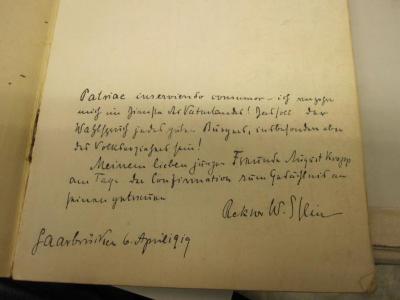 Patriae inserviendo consumor – ich verzehre
mich im Dienste des Vaterlandes! Das soll der
Wahlspruch jedes guten Bürgers, insbesondere aber
des Volkserziehers sein!
Meinem lieben jungen Freunde August Krapp
am Tage der Confirmation zum Gedächtnis an
seinen getreuen
Rektor W.
Saarbrücken 6. April 1919